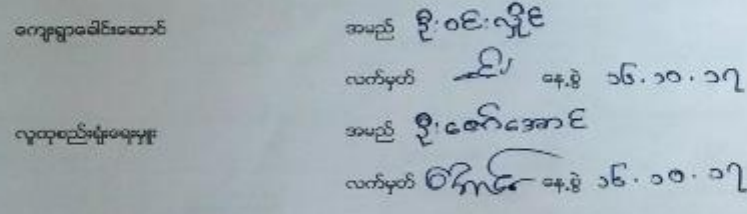 ကျေးရွာခေါင်းဆောင် အမည် ဦးဝင်းလှိုင်
လက်မှတ် နေ့စွဲ ၁၆.၁၀.၁၇
လူထုစည်းရုံးရေးမှူး အမည် ဦးဇော်အောင်
လက်မှတ် နေ့စွဲ ၁၆.၁၀.၁၇